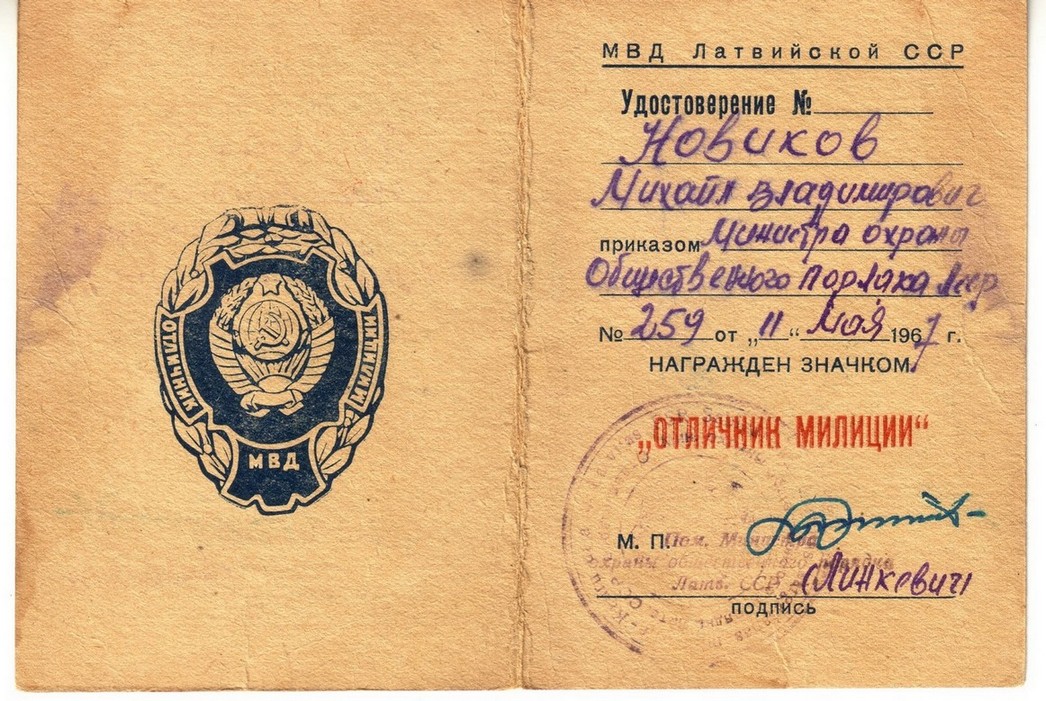 ОТЛИЧНИК
МИЛИЦИИ
МВД
МВД Латвийской ССР
Удостоверение №
Новиков
Михаил Владимирович
приказом Министра охраны
Общественного порядка Лсср
№ 259 от „11“ Мая 1967 г.
НАГРАЖДЕН ЗНАЧКОМ
„ОТЛИЧНИК МИЛИЦИИ“
М. П. Пом. Министра
охраны общественного порядка
Латв. ССР (Линкевич)
подпись